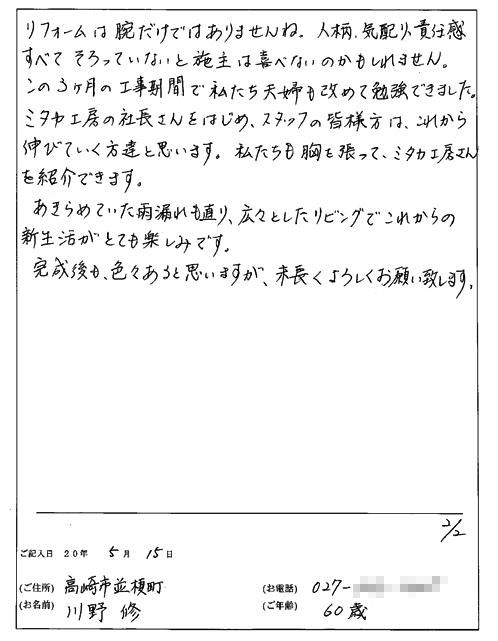 リフォームは腕だけではありませんね。人柄、気配り、責任感
すべて そろっていないと施主は喜べないのかもしれません。
この3ヶ月の工事期間で私たち夫婦も改めて勉強できました。
ミタカ工房の社長さんをはじめ、スタッフの皆様方は、これから
伸びていく方達と思います。私たちも胸を張って、ミタカ工房さん
を紹介できます。
あきらめていた雨漏れも直り、広々としたリビングでこれからの
新生活がとても楽しみです。
完成後も、色々あると思いますが、末長くよろしくお願い致します。
2/2
ご記入日 20年 5月 15日
(ご住所) 高崎市並榎町 (お電話) 027-
(お名前) 川野 修 (ご年齢) 60歳